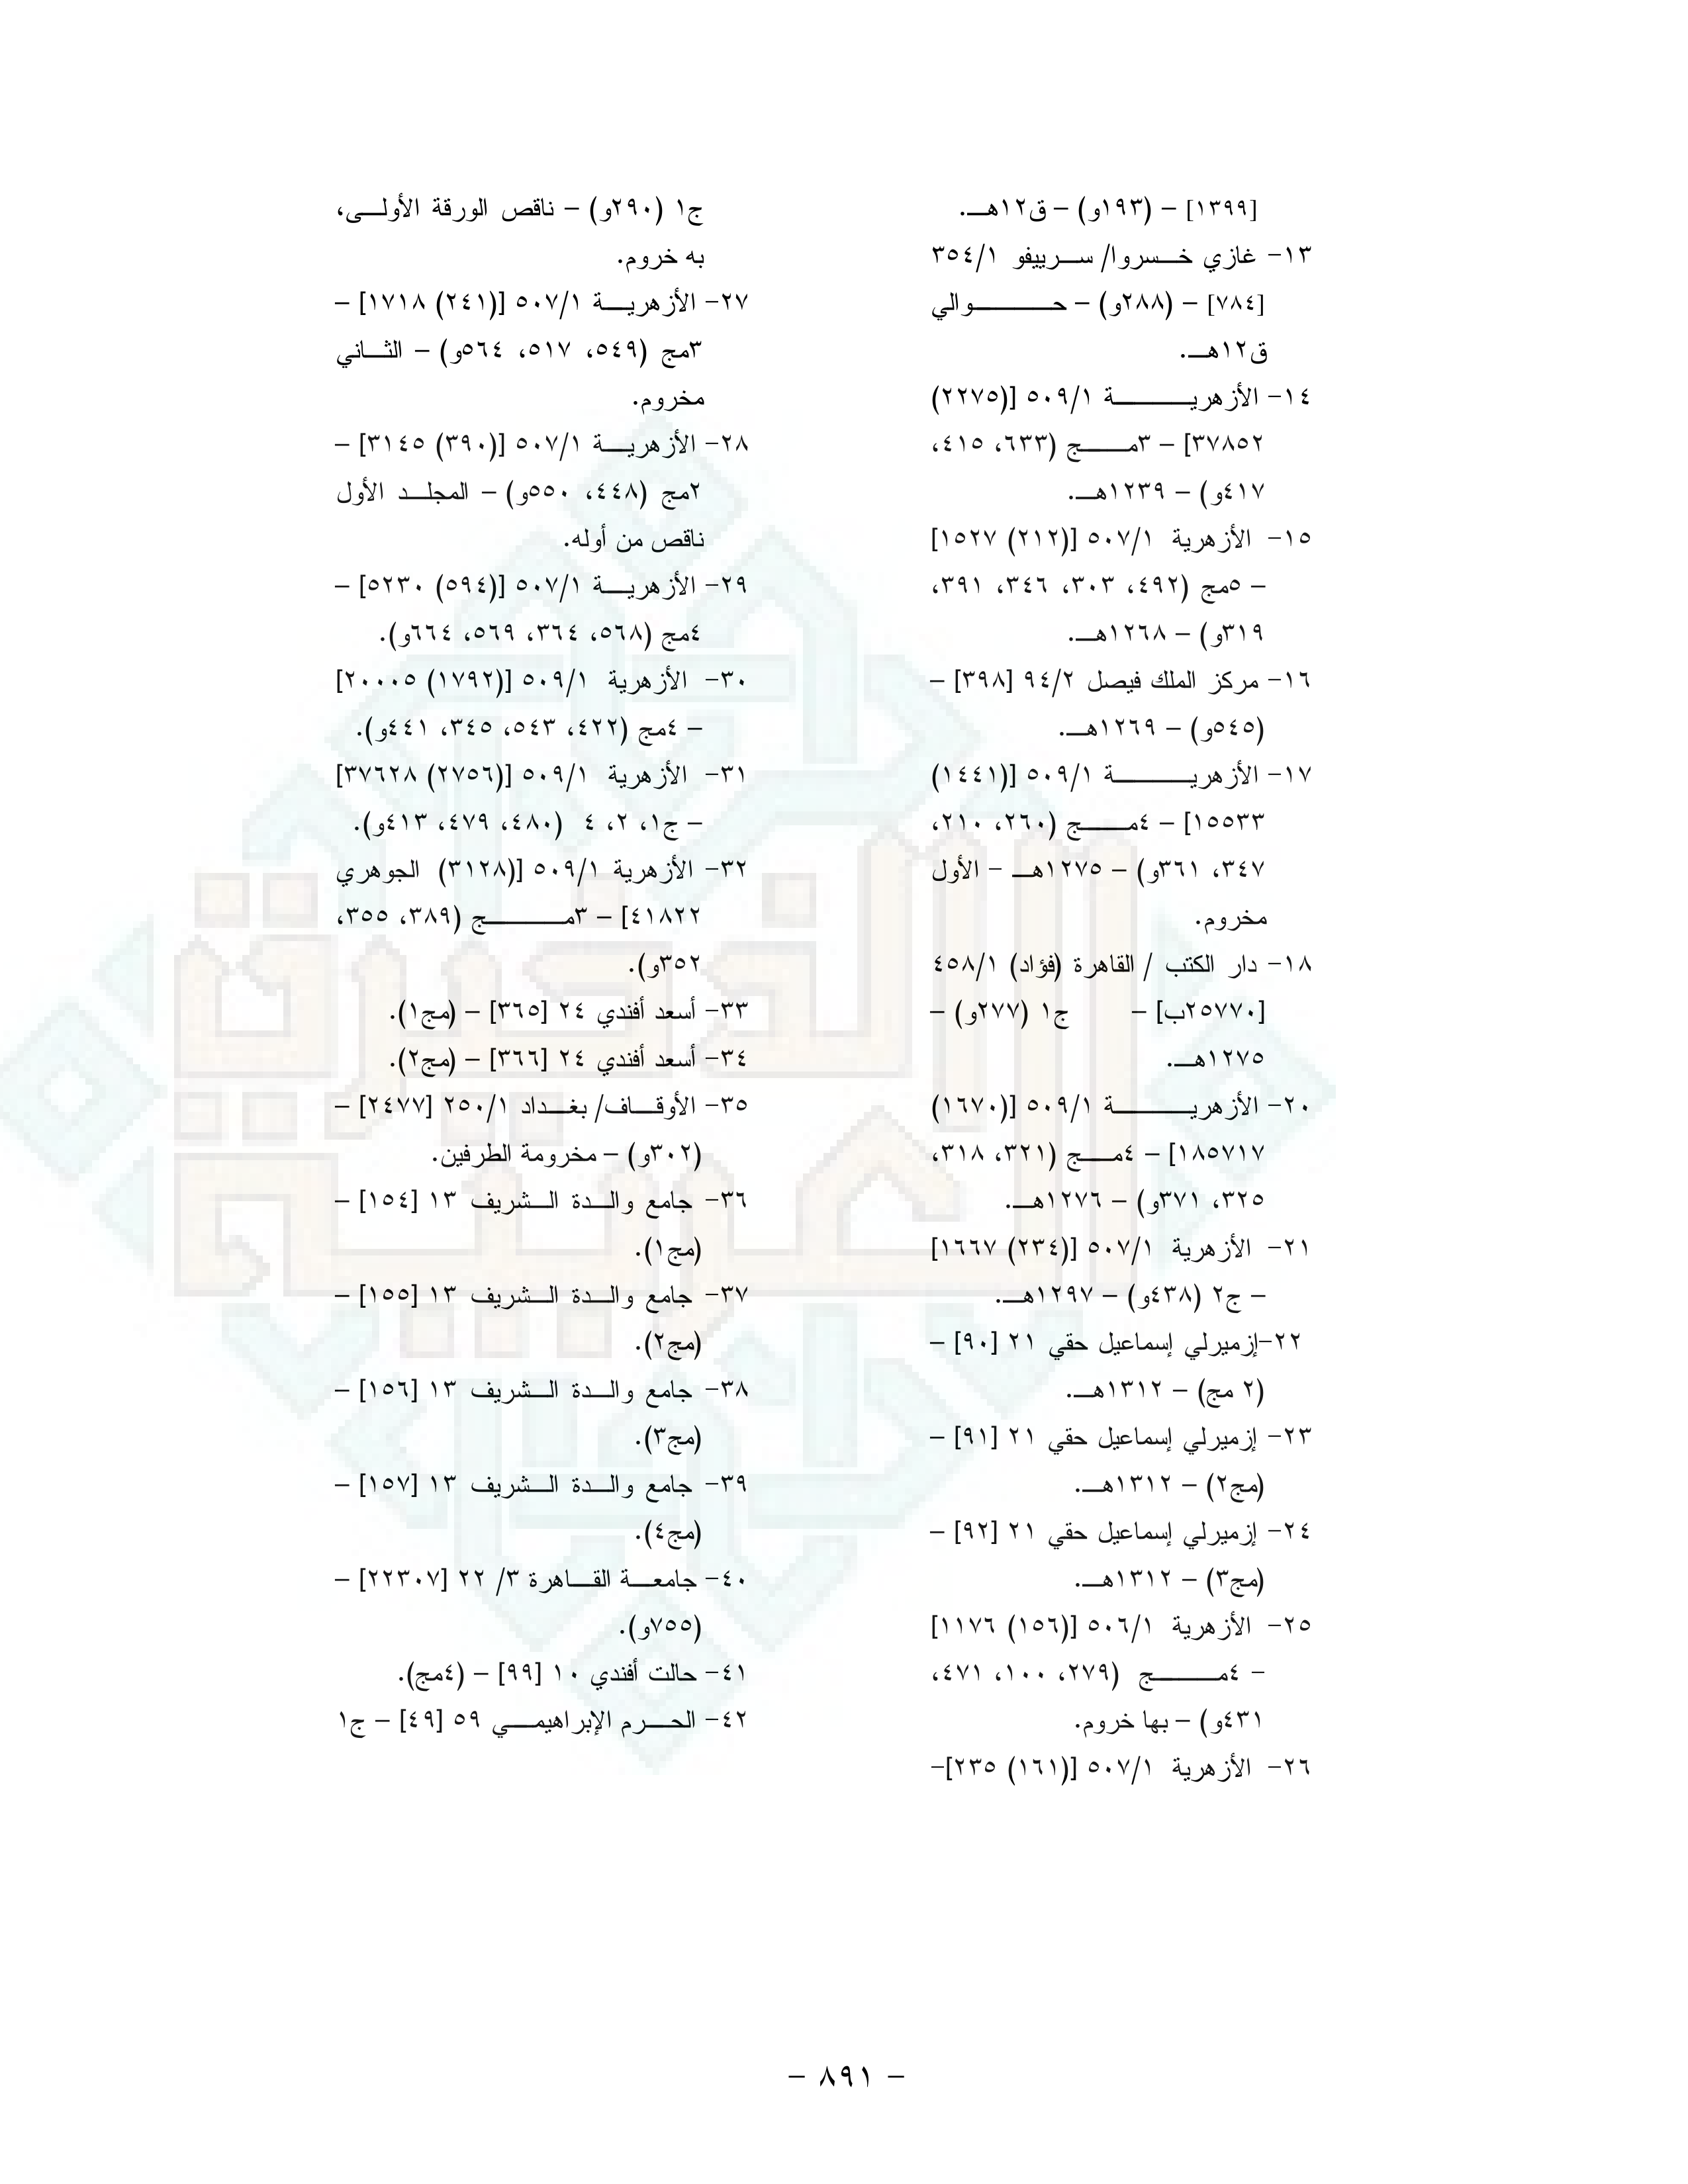 [١٣٩٩] – (١٩٣و) – ق١٢هـ.
١٣- غازي خسروا/ سرييفو ٣٥٤/١
[٧٨٤] – (٢٨٨و) – حوالي
ق١٢هـ.
١٤- الأزهرية ٥٠٩/١ [(٢٢٧٥)
٣٧٨٥٢] – ٣مج (٦٣٣، ٤١٥،
٤١٧و) – ١٢٣٩هـ.
١٥- الأزهرية ٥٠٧/١ [(٢١٢) ١٥٢٧]
– ٥مج (٤٩٢، ٣٠٣، ٣٤٦، ٣٩١،
٣١٩و) – ١٢٦٨هـ.
١٦- مركز الملك فيصل ٩٤/٢ [٣٩٨] –
(٥٤٥و) – ١٢٦٩هـ.
١٧- الأزهرية ٥٠٩/١ [(١٤٤١)
١٥٥٣٣] – ٤مج (٢٦٠، ٢١٠،
٣٤٧، ٣٦١و) – ١٢٧٥هـ – الأول
مخروم.
١٨- دار الكتب / القاهرة (فؤاد) ٤٥٨/١
[٢٥٧٧٠ب] – ج١ (٢٧٧و) –
١٢٧٥هـ.
٢٠- الأزهرية ٥٠٩/١ [(١٦٧٠)
١٨٥٧١٧] – ٤مج (٣٢١، ٣١٨،
٣٢٥، ٣٧١و) – ١٢٧٦هـ.
٢١- الأزهرية ٥٠٧/١ [(٢٣٤) ١٦٦٧]
– ج٢ (٤٣٨و) – ١٢٩٧هـ.
٢٢-إزميرلي إسماعيل حقي ٢١ [٩٠] –
(٢ مج) – ١٣١٢هـ.
٢٣- إزميرلي إسماعيل حقي ٢١ [٩١] –
(مج٢) – ١٣١٢هـ.
٢٤- إزميرلي إسماعيل حقي ٢١ [٩٢] –
(مج٣) – ١٣١٢هـ.
٢٥- الأزهرية ٥٠٦/١ [(١٥٦) ١١٧٦]
– ٤مج (٢٧٩، ١٠٠، ٤٧١،
٤٣١و) – بها خروم.
٢٦- الأزهرية ٥٠٧/١ [(١٦١) ٢٣٥]-
ج١ (٢٩٠و) – ناقص الورقة الأولى،
به خروم.
٢٧- الأزهرية ٥٠٧/١ [(٢٤١) ١٧١٨] –
٣مج (٥٤٩، ٥١٧، ٥٦٤و) – الثاني
مخروم.
٢٨- الأزهرية ٥٠٧/١ [(٣٩٠) ٣١٤٥] –
٢مج (٤٤٨، ٥٥٠و) – المجلد الأول
ناقص من أوله.
٢٩- الأزهرية ٥٠٧/١ [(٥٩٤) ٥٢٣٠] –
٤مج (٥٦٨، ٣٦٤، ٥٦٩، ٦٦٤و).
٣٠- الأزهرية ٥٠٩/١ [(١٧٩٢) ٢٠٠٠٥]
– ٤مج (٤٢٢، ٥٤٣، ٣٤٥، ٤٤١و).
٣١- الأزهرية ٥٠٩/١ [(٢٧٥٦) ٣٧٦٢٨]
– ج١، ٢، ٤ (٤٨٠، ٤٧٩، ٤١٣و).
٣٢- الأزهرية ٥٠٩/١ [(٣١٢٨) الجوهري
٤١٨٢٢] – ٣مج (٣٨٩، ٣٥٥،
٣٥٢و).
٣٣- أسعد أفندي ٢٤ [٣٦٥] – (مج١).
٣٤- أسعد أفندي ٢٤ [٣٦٦] – (مج٢).
٣٥- الأوقاف/ بغداد ٢٥٠/١ [٢٤٧٧] –
(٣٠٢و) – مخرومة الطرفين.
٣٦- جامع والدة الشريف ١٣ [١٥٤] –
(مج١).
٣٧- جامع والدة الشريف ١٣ [١٥٥] –
(مج٢).
٣٨- جامع والدة الشريف ١٣ [١٥٦] –
(مج٣).
٣٩- جامع والدة الشريف ١٣ [١٥٧] –
(مج٤).
٤٠- جامعة القاهرة ٣/ ٢٢ [٢٢٣٠٧] –
(٧٥٥و).
٤١- حالت أفندي ١٠ [٩٩] – (٤مج).
٤٢- الحرم الإبراهيمي ٥٩ [٤٩] – ج١
الذخيرة
العربية
– ٨٩١ –